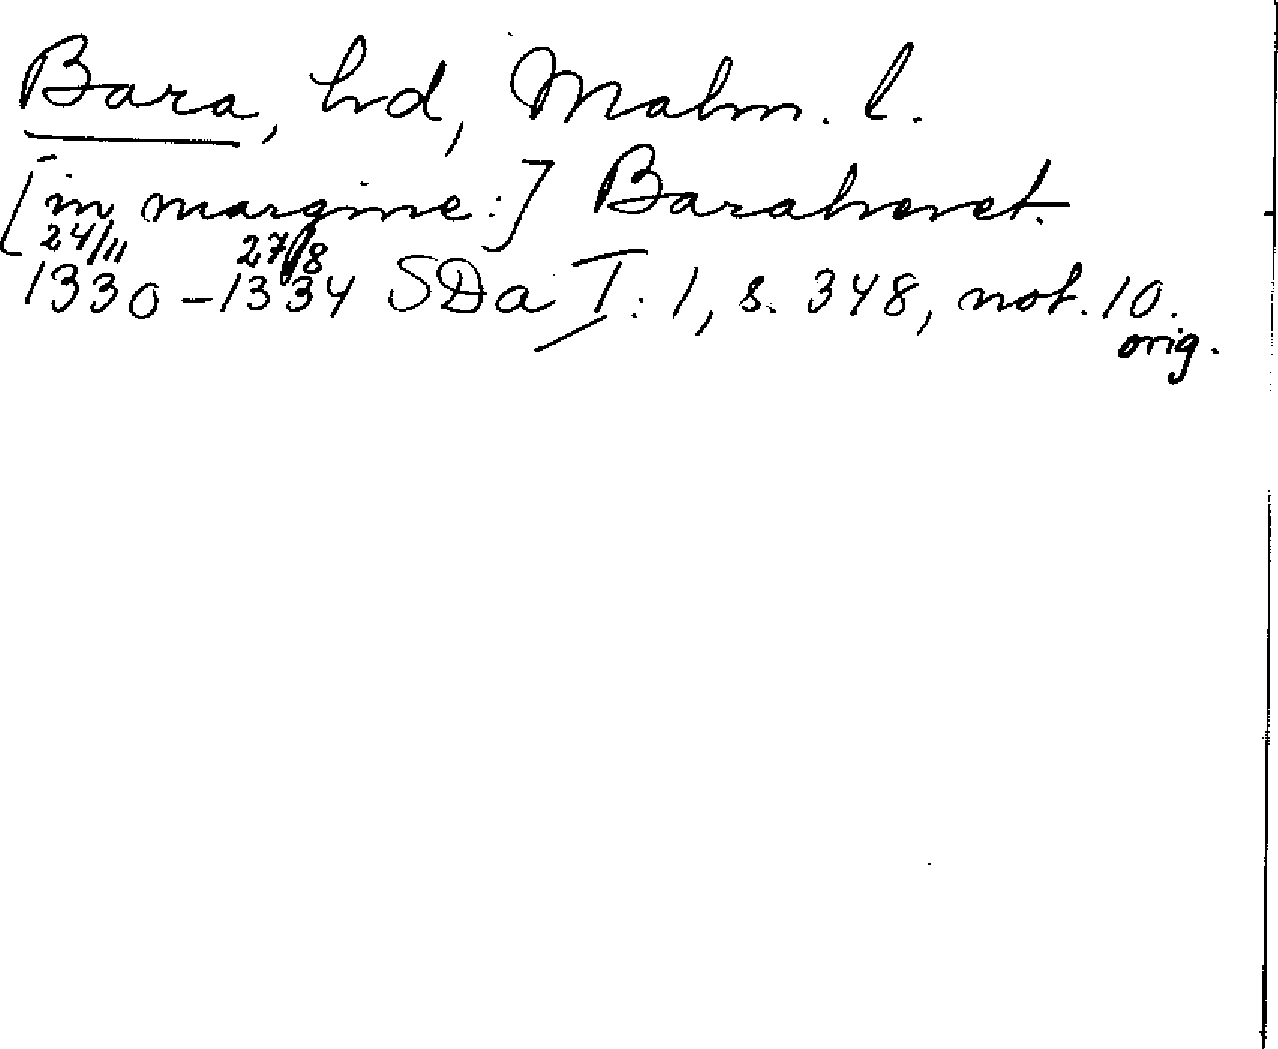 Bara, hd, Malm. l.
[in margine:] Baraheret.
24/11 27/8
1330-1334 SDa I: 1, s. 348, not. 10.
orig.